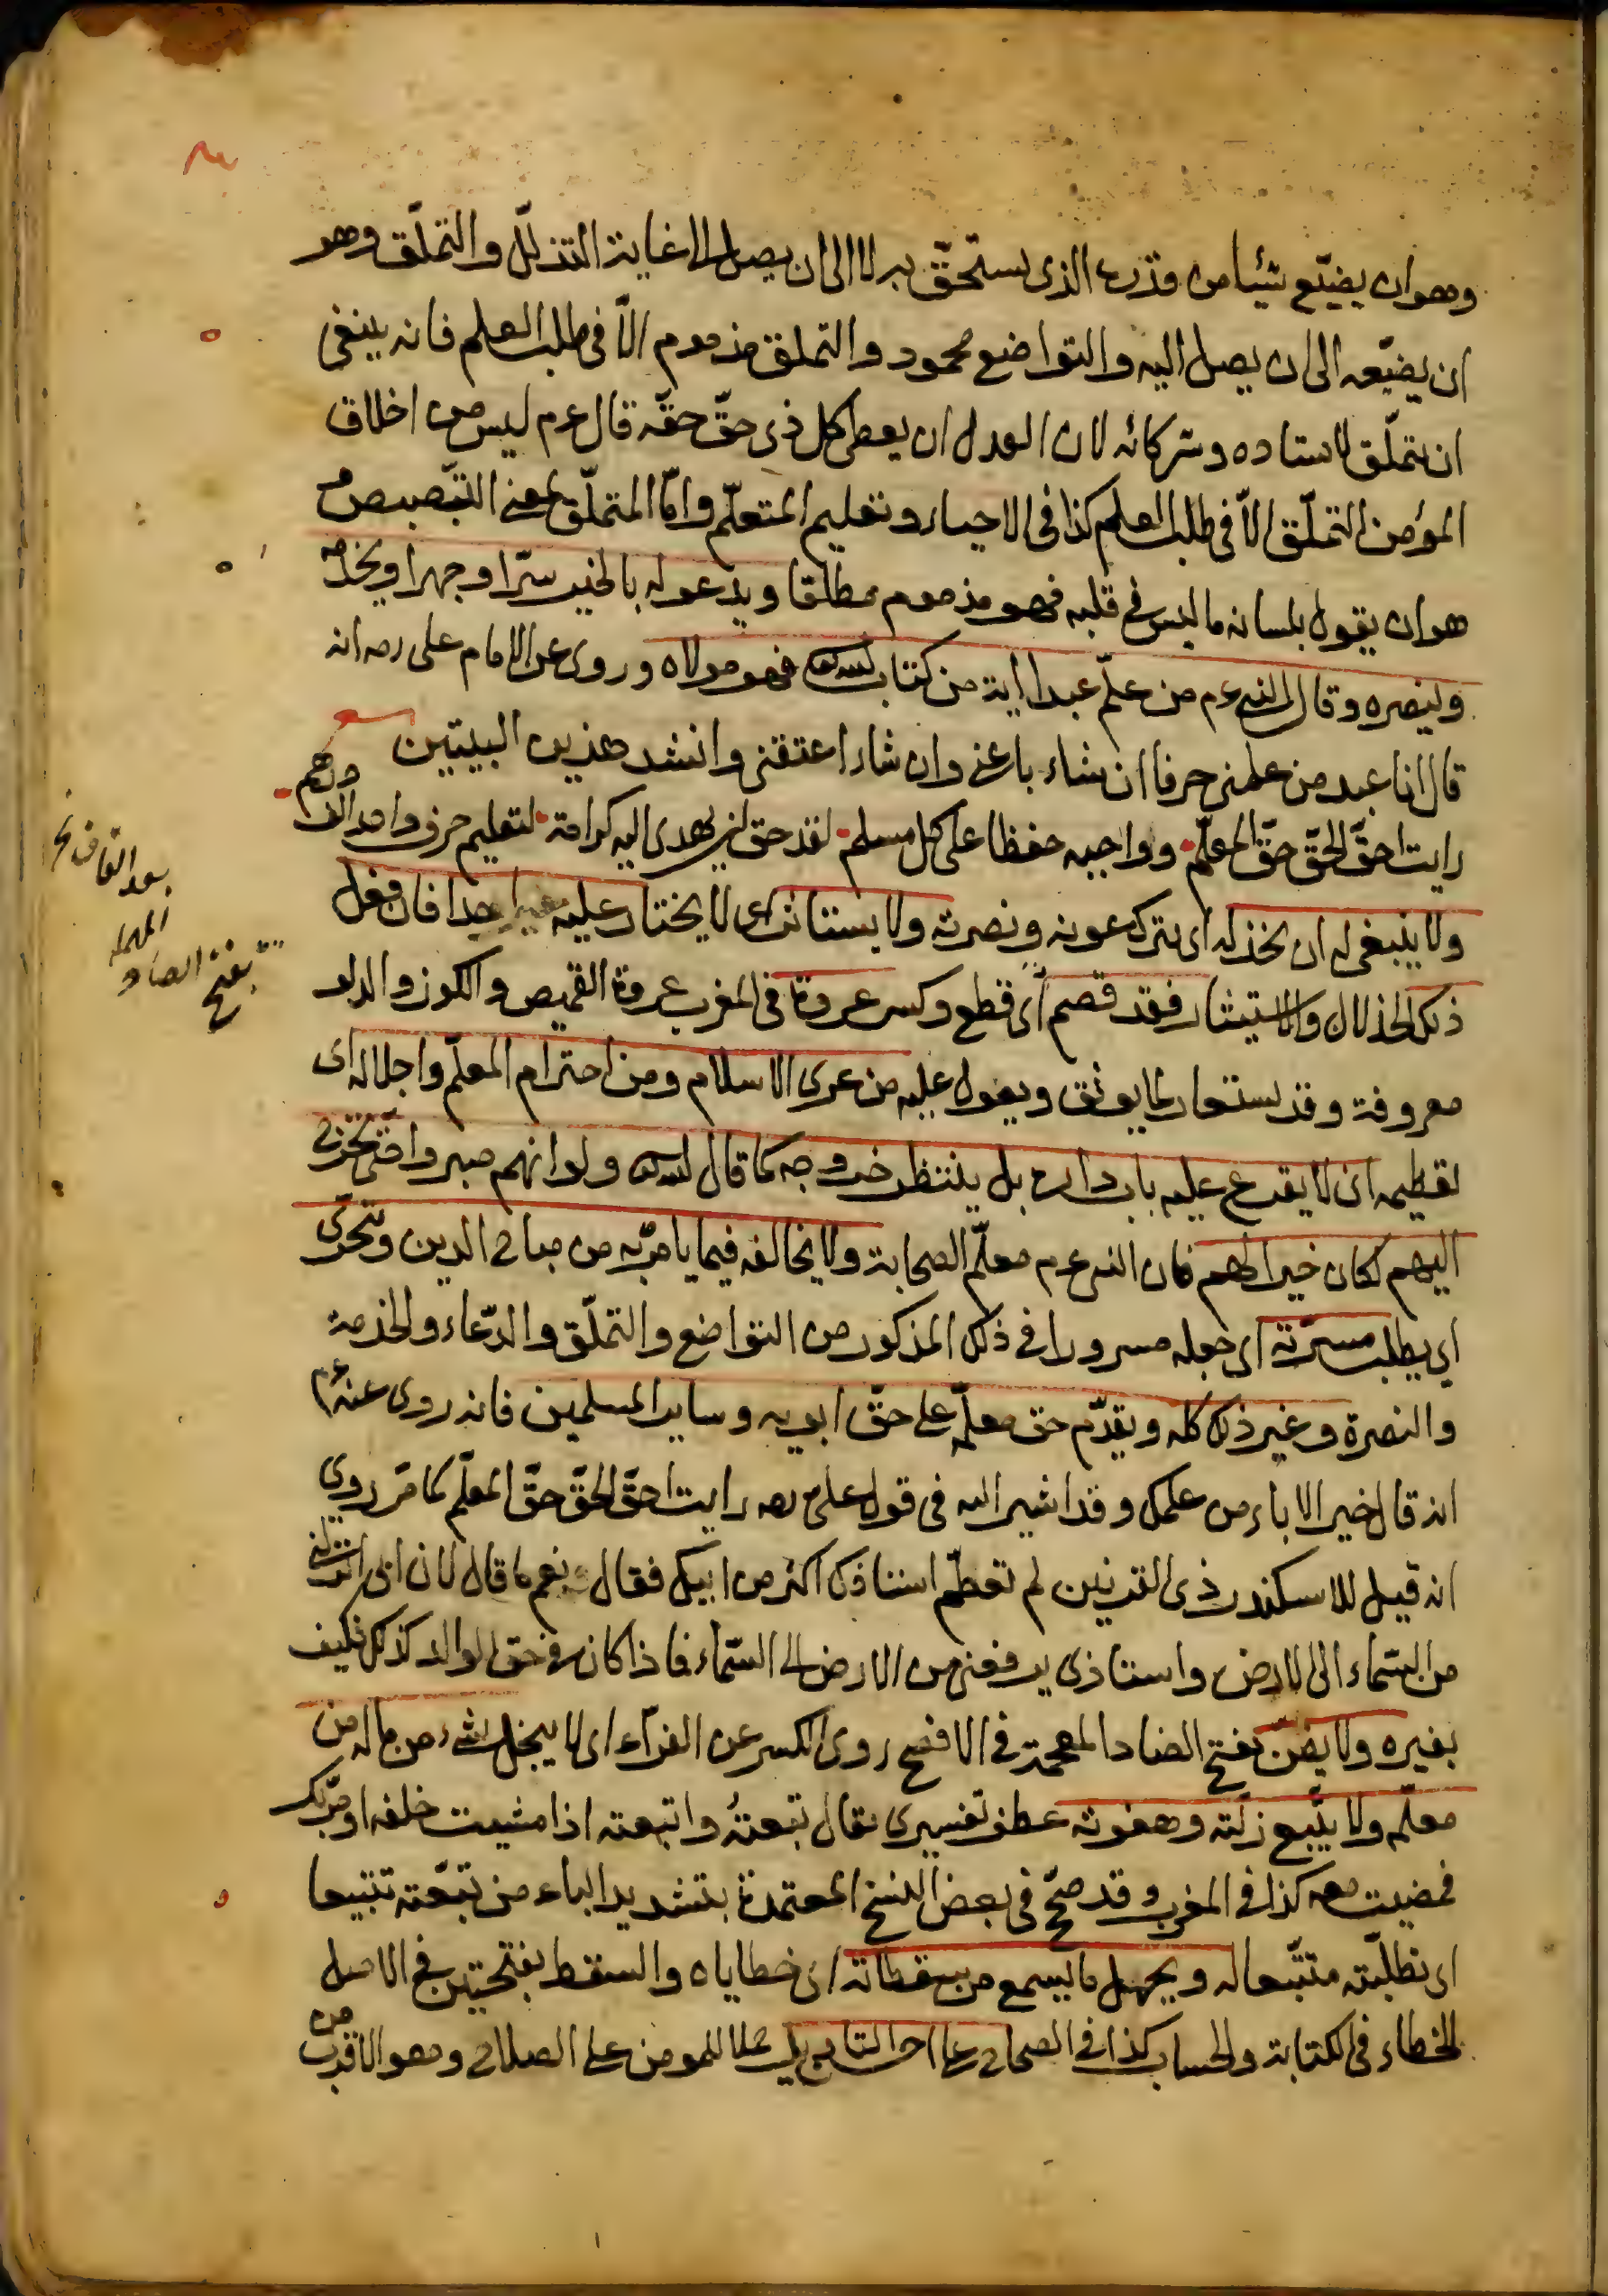 وهو ان يضيّع شيئا من قدره الذى يستحقّ به لا الى ان يصل الى غاية التذلّل والتملّق وهو
ان يضيّعه الى ان يصل اليه والتواضع محمود والتملق مذموم الّا فى طلب العلم فانه ينبغى
ان يتملّق لاستاده وشركائه لان العدل ان يعطى كل ذى حقّ حقّه قال عم ليس من اخلاق
المؤمن التملّق الّا فى طلب العلم كذا فى الاحياء وتعليم المتعلّم وامّا المتملّق بمعنى التبصبص
هو ان يقول بلسانه ما ليس فى قلبه فهو مذموم مطلقا ويدعو له بالخير سرّا وجهرا ويخدمه
وينصره وقال النبى عم من علّم عبدا اية من كتاب الله فهو مولاه وروى عن الامام على رضه انه
قال انا عبد من علمنى حرفا ان شاء باعنى وان شاء اعتقنى وانشد هذين البيتين
رايت احقّ الحقّ حقّ المعلّم وواجبه حفظا على كل مسلم لقد حق ان يهدى اليه كرامة لتعليم حرف واحد الف درهم
ولا ينبغى له ان يخذله اى يترك عونه ونصرته ولا يستاثر اى لا يختار عليه احدا فان فعل
ذلك الخذلان والاستيثار فقد قصم اى قطع وكسر عروة فى المغرب عروة القميص والكوز والدلو
معروفة وقد يستعار لما يوثق ويعول عليه من عرى الاسلام ومن احترام المعلّم واجلاله اى
تعظيمه ان لا يقرع عليه باب داره بل ينتظر خروجه كما قال الله ولو انهم صبروا حتى تخرج
اليهم لكان خيرا لهم فان النبى عم معلّم الصحابة ولا يخالفه فيما يامر به من مباحى الدين ويتحرّى
اى يطلب مسرّته اى جعله مسرورا فى ذلك المذكور من التواضع والتملّق والدّعاء والخدمة
والنصرة وغير ذلك كله ويقدّم حق معلّمه على حقّ ابويه وساير المسلمين فانه روى عنه عم
انه قال خير الاباء من علمك وقد اشير اليه فى قول على رضه رايت احقّ الحقّ حقّ المعلّم كما مرّ روى
انه قيل للاسكندر ذى القرنين لم تعظّم استاذك اكثر من ابيك فقال نعم ما قال لان ابى انزلنى
من السّماء الى الارض واستاذى يرفعنى من الارض الى السّماء فاذا كان فى حق الوالد كذلك فكيف
بغيره ولا يضنّ بفتح الضاد المعجمة فى الافصح روى الكسر عن الفرّاء اى لا يبخل بشىء من ماله من
معلّمه ولا يتّبع زلّته وهفوته عطف تفسيرى يقال تبعتهُ واتبعته اذا مشيت خلفه او مرّ بك
فمضيت معه كذا فى المغرب وقد صحّ فى بعض النسخ المعتمدة بتشديد الباء من تبّعته تتبيعا
اى تطلّبته متتبّعا له ويجهل ما يسمع من سقطاته اى خطاياه والسقط بفتحتين فى الاصل
الخطاء فى الكتابة والحساب كذا فى الصحاح على للمومن على الصلاح وهو الاقرب من
بعد القاف
المهملة
بفتح الصاد